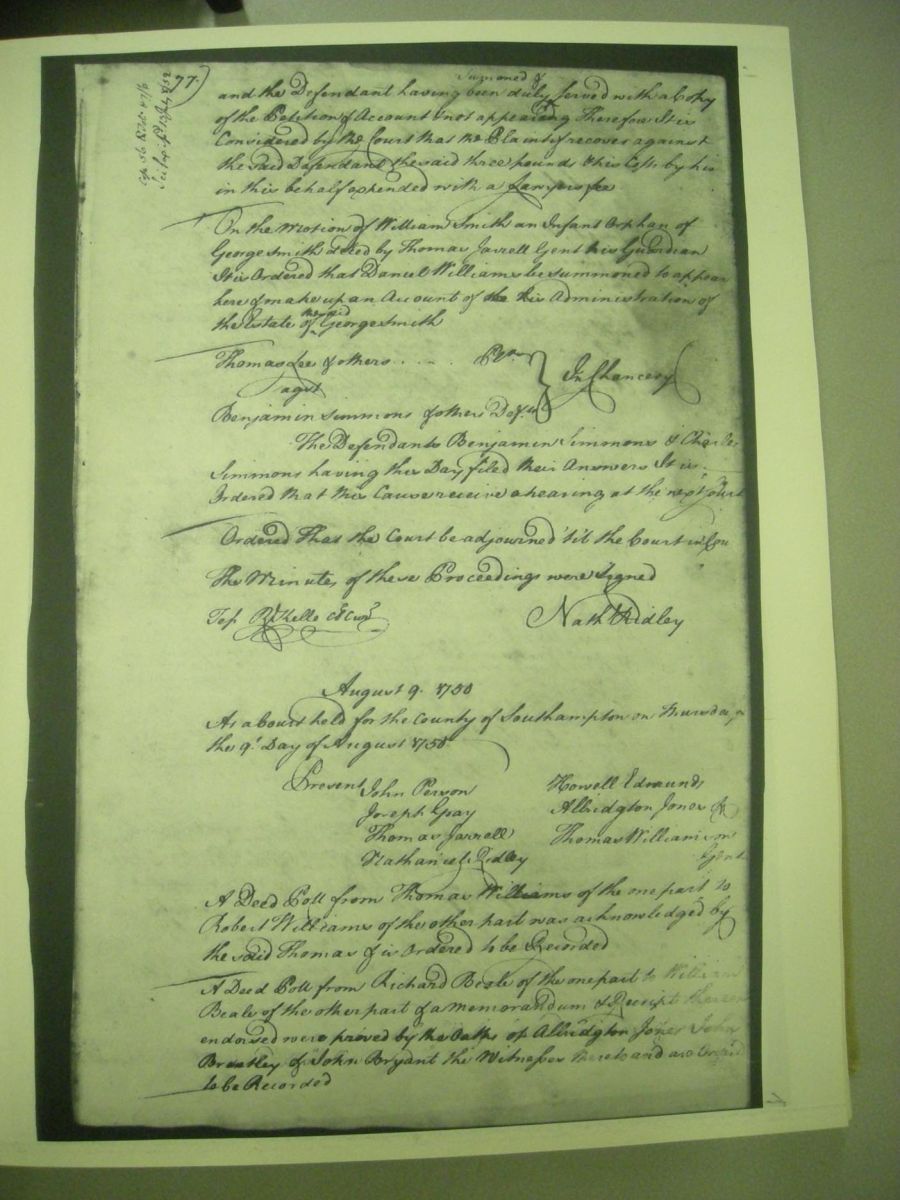 77.)
summoned &
and the Defendant having been duly served with a Copy
of the Petition & Account & not appearing Therefore It is
Considered by the Court that the Plaintif recover against
the said Defendant the said three pounds & his Costs by him
in this behalf expended with a Lawyers fee
On the Motion of William Smith an Infant Orphan of
George Smith dēced by Thomas Jarrell Gent his Guardian
It is Ordered that Daniel Williams be summoned to appear
here & make up an Account of the his Administration of
the said
the Estate of George Smith
Thomas Lee & others . . . . Plts
agst
In Chancery
Benjamin Simmons & others Defts
The Defendants Benjamin Simmons & Charles
Simmons having this Day filed their Answers It is
Ordered that this Cause receive a hearing at the next Court
Ordered That the Court be adjourned 'til the Court in Cou
The Minutes of these Proceedings were Signed
Test R Kello Nath Ridley
August 9. 1750
At a Court held for the County of Southampton on Thursday
the 9th Day of August 1750
Present John Person Howell Edmunds
Joseph Gray Albridgton Jones Jr
Thomas Jarrell Thomas Williamson
Nathaniel Ridley Gent
A Deed Poll from Thomas Williams of the one part to
Robert Williams of the other part was acknowledged by
the said Thomas & is Ordered to be Recorded
A Deed Poll from Richard Beale of the one part to William
Beale of the other part & a Memorandum & Receipt thereon
endorsed were proved by the Oaths of Albridgton Jones John
Brantley & John Bryant the Witnesses thereto and are Ordered
to be Recorded